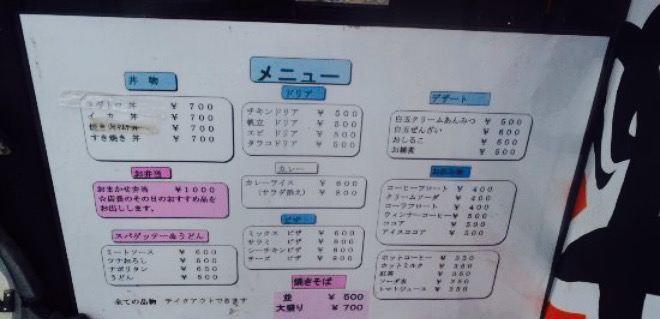 メニュー
丼物
ネギトロ丼 ￥700
イカ丼 ￥700
￥700
すき焼き丼 ￥700
お弁当
おまかせ弁当 ￥1000
☆店長のその日のおすすめ品を
お出しします。
スパゲッテー&うどん
ミートソース ￥600
ツナおろし ￥500
ナポリタン ￥650
うどん ￥500
全ての品物 テイクアウトできます
ドリア
チキンドリア ￥500
帆立ドリア ￥500
エビドリア ￥500
タラコドリア ￥500
カレー
カレーライス ￥600
(サラダ添え) ￥800
ピザ
ミックスピザ ￥800
サラミピザ ￥800
シーチキンピザ ￥600
チーズピザ ￥800
焼きそば
並 ￥500
大盛り ￥700
デザート
白玉クリームあんみつ ￥500
白玉ぜんざい ￥600
おしるこ ￥500
お雑煮 ￥500
お飲み物
コーヒーフロート ￥400
クリームソーダ ￥400
コーラフロート ￥400
ウィンナーコーヒー ￥500
ココア ￥500
アイスココア ￥500
ホットコーヒー ￥350
ホットミルク ￥350
紅茶 ￥350
ソーダ水 ￥350
トマトジュース ￥350